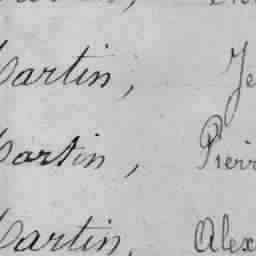 Martin, Je
Martin, Pierr
Martin, Alex